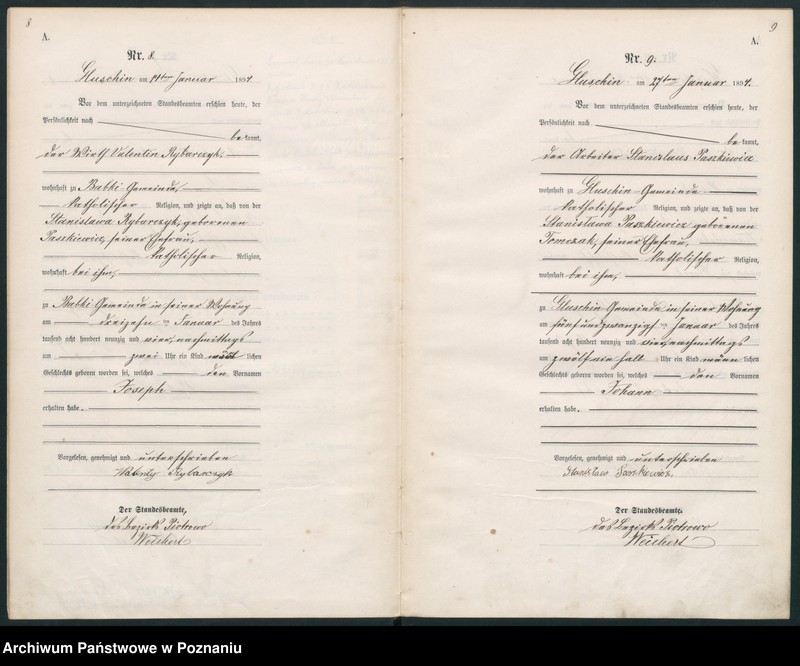 8
A.
Nr. 8.
Gluschin am 14ten Januar 1894
Vor dem unterzeichneten Standesbeamten erschien heute, der
Persönlichkeit nach
be kannt,
der Wirth Valentin Rybarczyk,
wohnhaft zu Babki Gemeinde,
katholischer Religion, und zeigte an, daß von der
Stanislawa Rybarczyk, geborenen
Paszkiewicz, seiner Ehefrau,
katholischer Religion,
wohnhaft bei ihm,
zu Babki Gemeinde in seiner Wohnung
am dreizehn ten Januar des Jahres
tausend acht hundert neunzig und vier, nachmittags
um zwei Uhr ein Kind männ lichen
Geschlechts geboren worden sei, welches den Vornamen
Joseph
erhalten habe.
Vorgelesen, genehmigt und unterschrieben
Rybarczyk
Der Standesbeamte,
des Bezirks Piotrowo
Weichert
9
A.
Nr. 9.
Gluschin am 27ten Januar 1894.
Vor dem unterzeichneten Standesbeamten erschien heute, der
Persönlichkeit nach
be kannt,
der Arbeiter Stanislaus Paszkiewicz
wohnhaft zu Gluschin Gemeinde
katholischer Religion, und zeigte an, daß von der
Stanislawa Paszkiewicz geborenen
Tomczak, seiner Ehefrau,
katholischer Religion,
wohnhaft bei ihm,
zu Gluschin Gemeinde in seiner Wohnung
am fünfundzwanzigs ten Januar des Jahres
tausend acht hundert neunzig und vier, nachmittags
um zwölf ein halb Uhr ein Kind männ lichen
Geschlechts geboren worden sei, welches den Vornamen
Johann
erhalten habe.
Vorgelesen, genehmigt und unterschrieben
Stanislaw Paszkiewicz.
Der Standesbeamte.
des Bezirks Piotrowo
Weichert
Archiwum Państwowe w Poznaniu